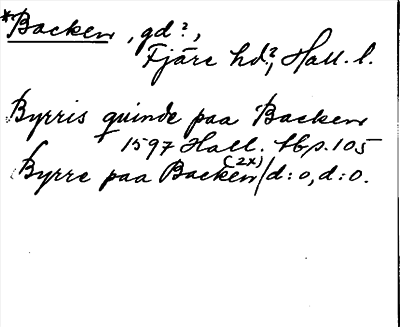 *Backen, gd?,
Fjäre hd?, Hall. l.
Byrris quinde paa Backen
1597 Hall. tbp. 105
Byrre paa Backen (2x)/d:o, d:o.